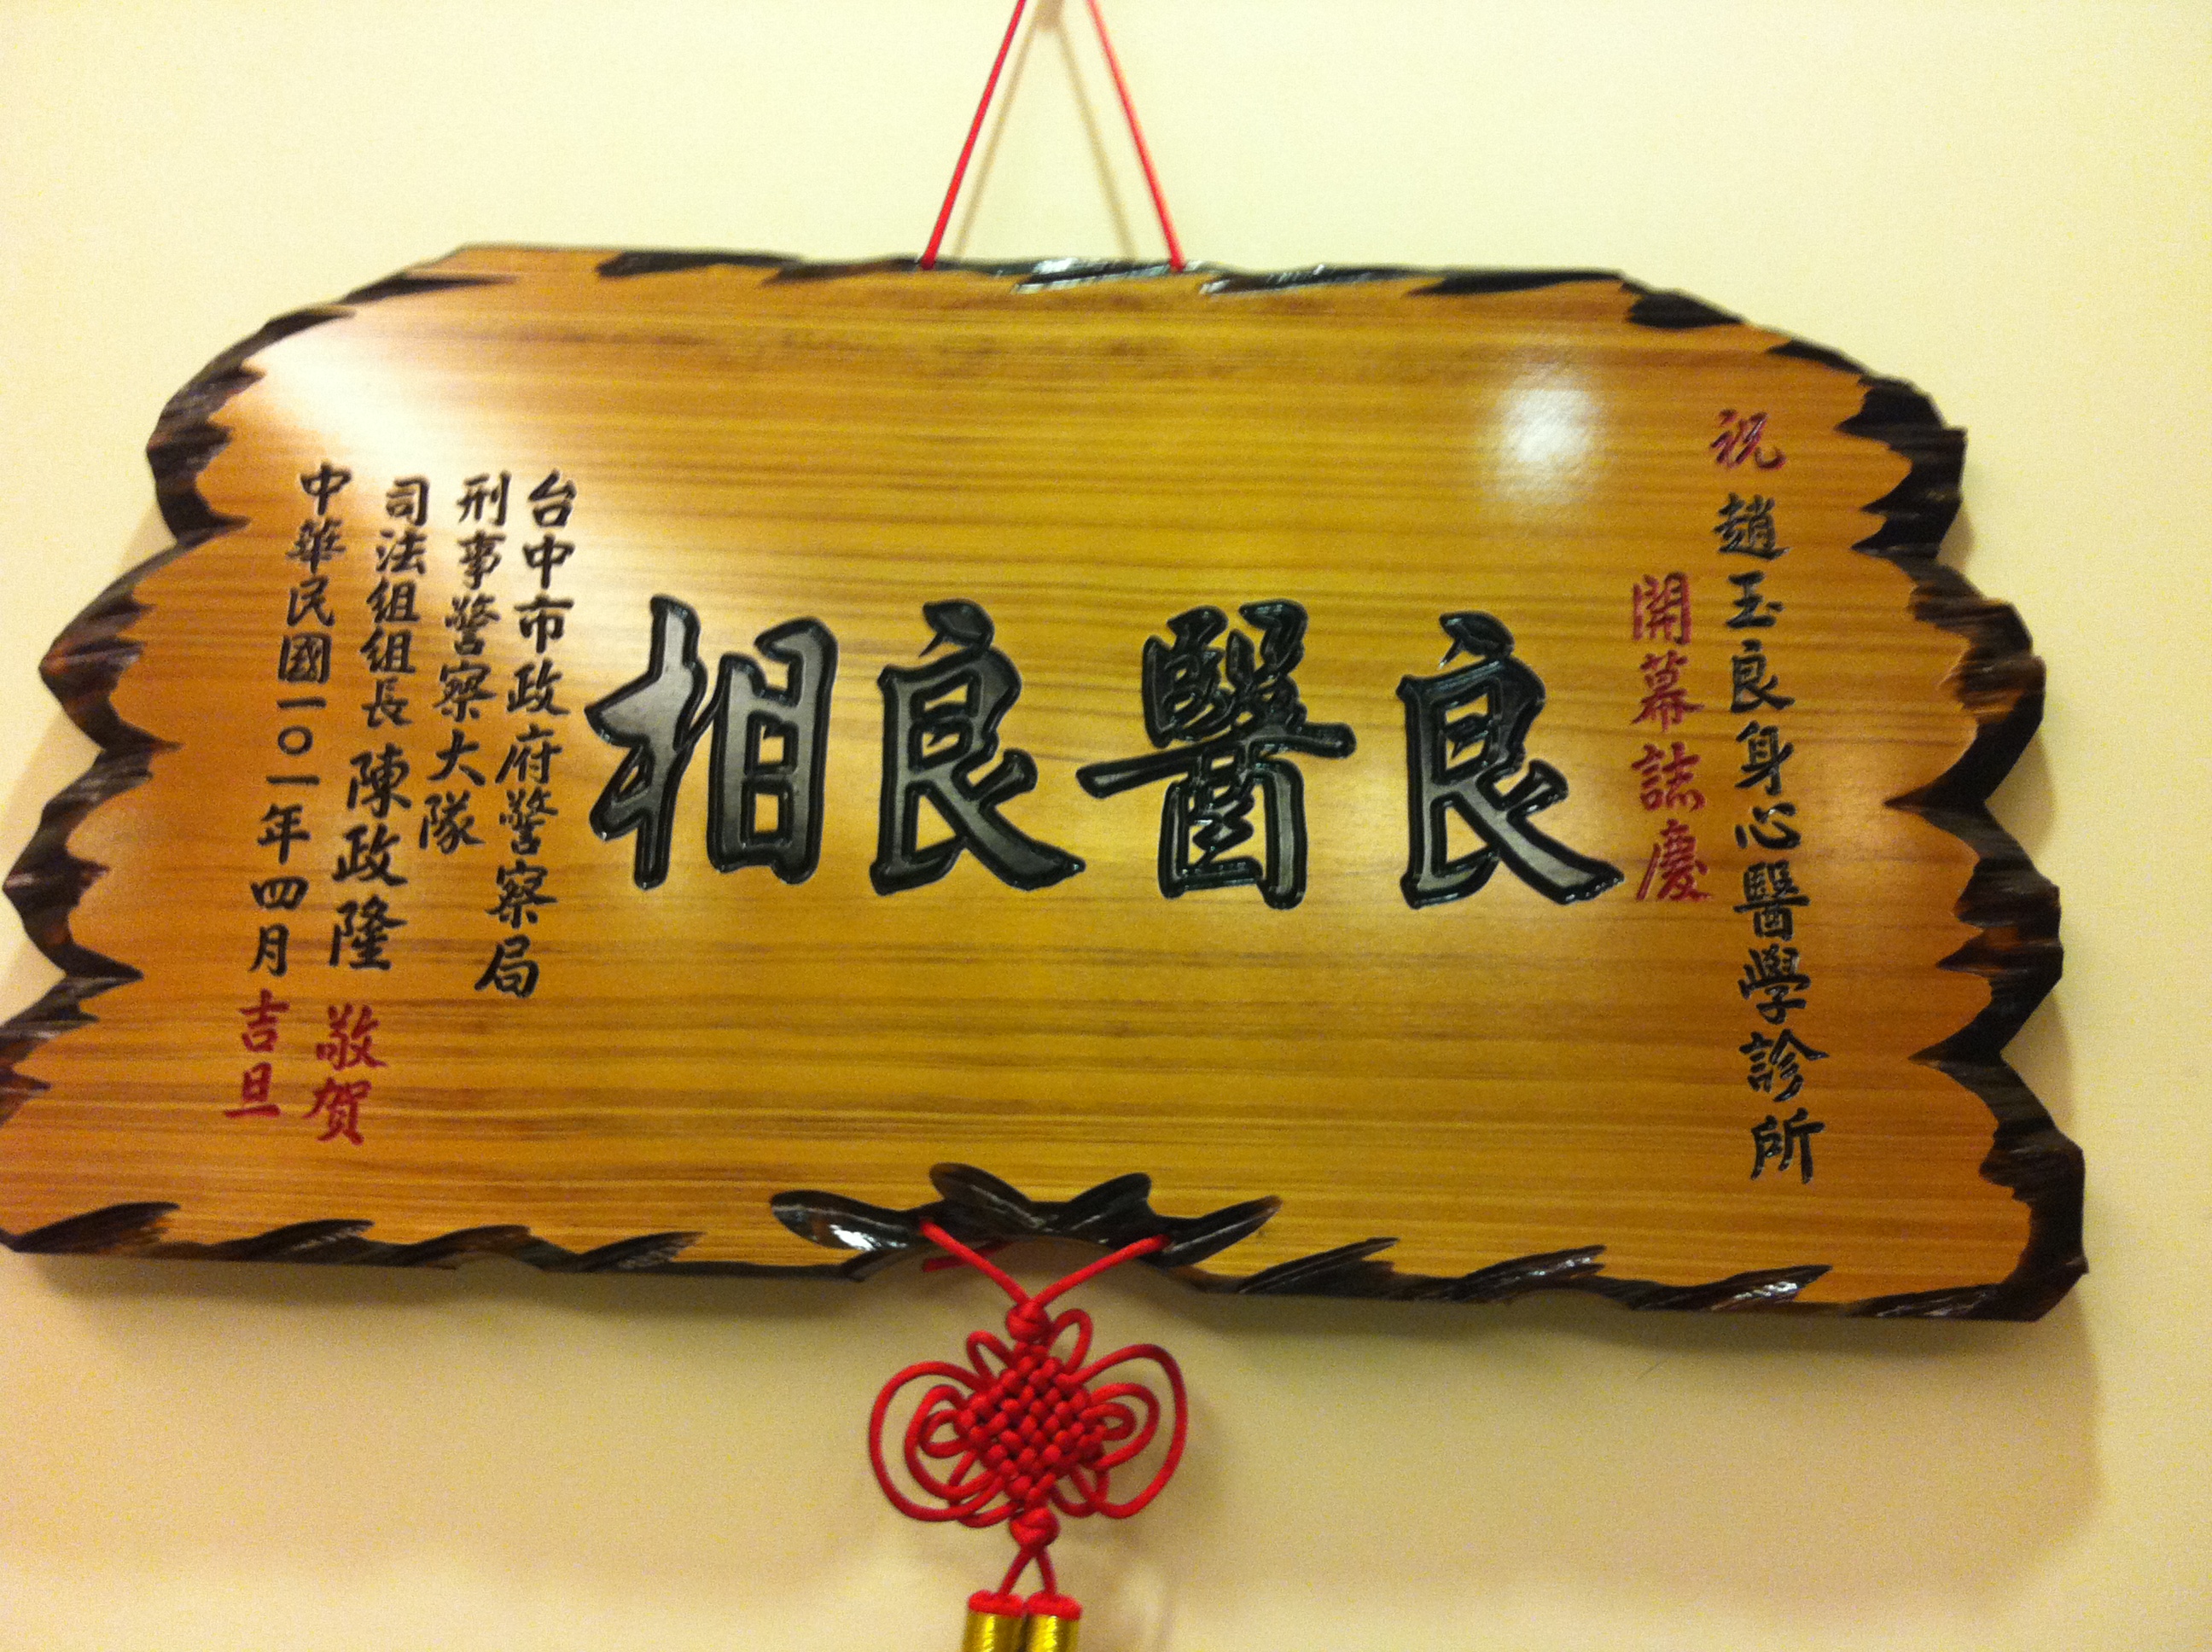 祝 趙玉良身心醫學診所
開幕誌慶
良醫良相
台中市政府警察局
刑事警察大隊
司法組組長 陳政隆 敬賀
中華民國一〇一年四月吉旦